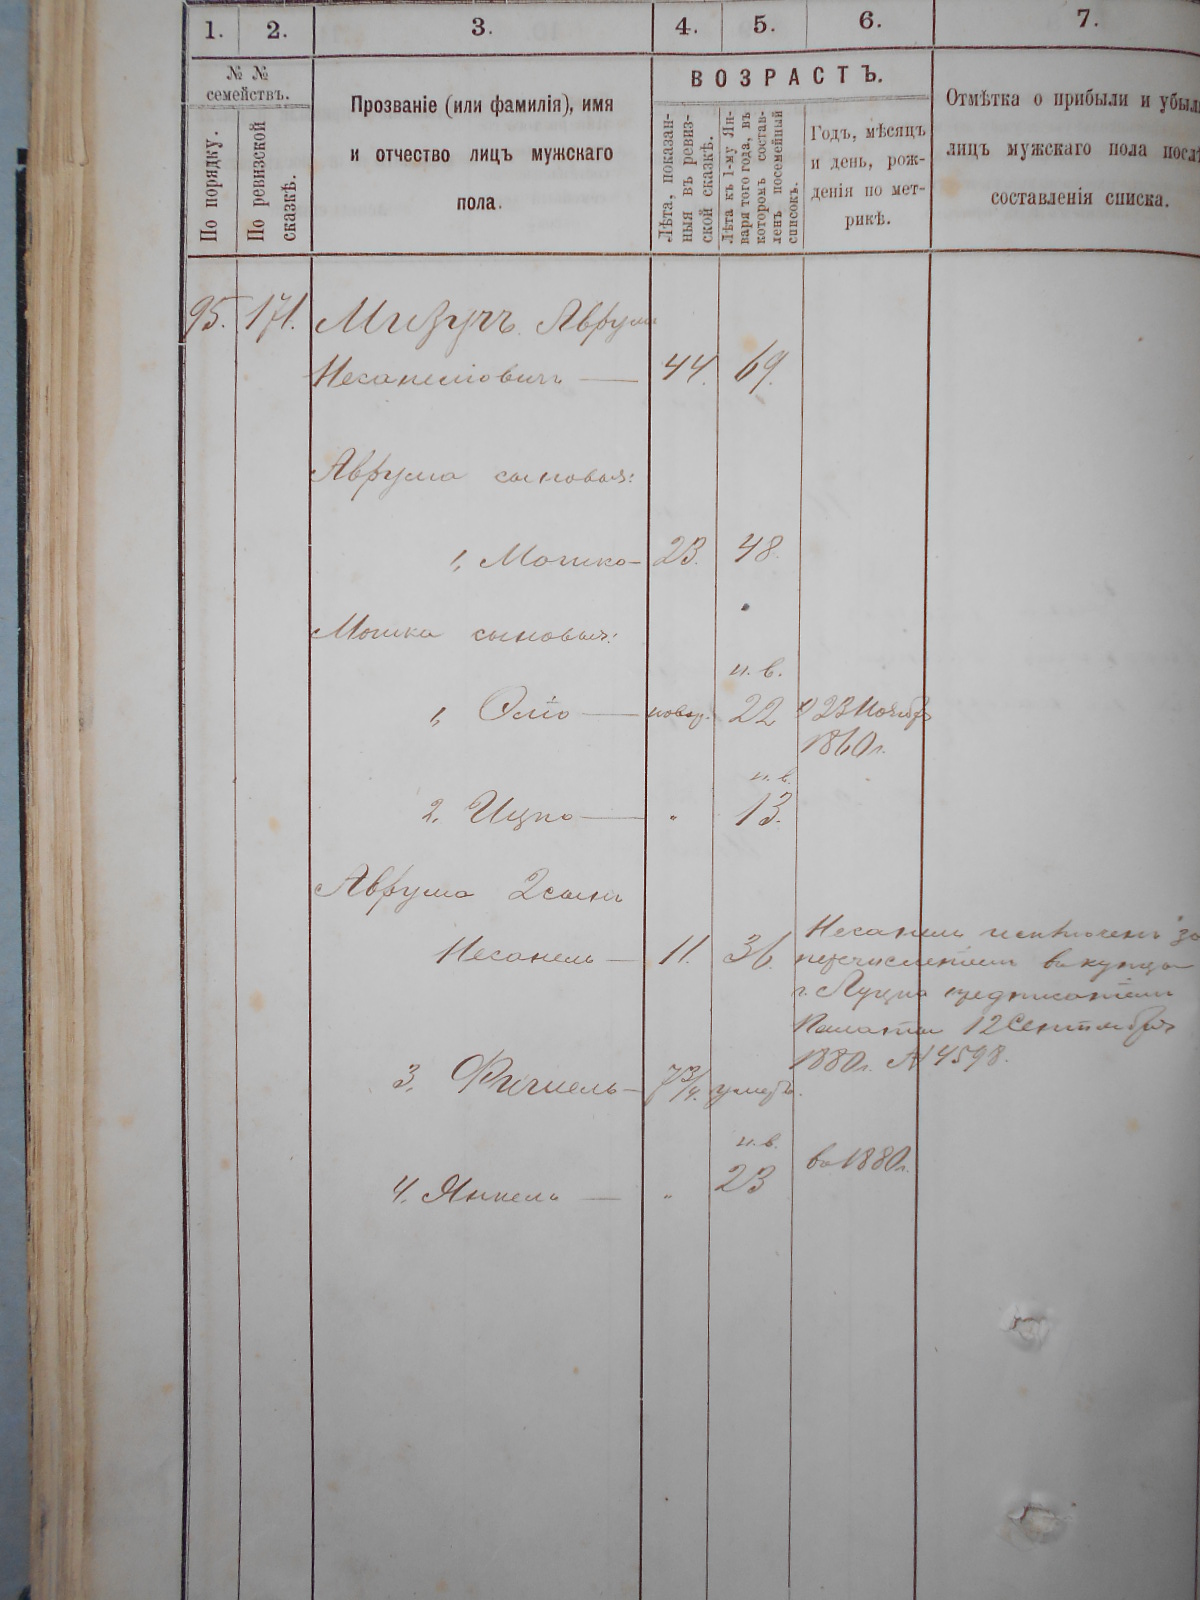 1. 2. 3. 4. 5. 6. 7.
№ №
семействъ.
По порядку.
По ревизской
сказкѣ.
Прозваніе (или фамилія), имя
и отчество лицъ мужскаго
пола.
ВОЗРАСТЪ.
Лѣта, показан-
ныя въ ревиз-
ской сказкѣ.
Лѣта къ 1-му Ян-
варя того года, въ
которомъ состав-
ленъ посемейный
списокъ.
Годъ, мѣсяцъ
и день, рож-
денія по мет-
рикѣ.
Отмѣтка о прибыли и убыл
лицъ мужскаго пола послѣ
составленія списка.
95. 171. Мизучъ Аврум
Несанеліовичъ — 44. 69.
Аврума сыновья:
1, Мошко — 23. 48.
Мошка сыновья:
н. в.
1, — новор. 22 23 Ноября
1860 г.
н. в.
2. Ицко — " 13.
Аврума 2 сынъ
Несанель — 11. 36. Несанель исключенъ за
перечисленіемъ въ купцы
г. Луцка предписаніемъ
Палаты 12 Сентября
1880 г. № 4598.
3. Фишель — 7 3/4. умеръ.
н. в.
въ 1880 г.
4. Янкель — " 23